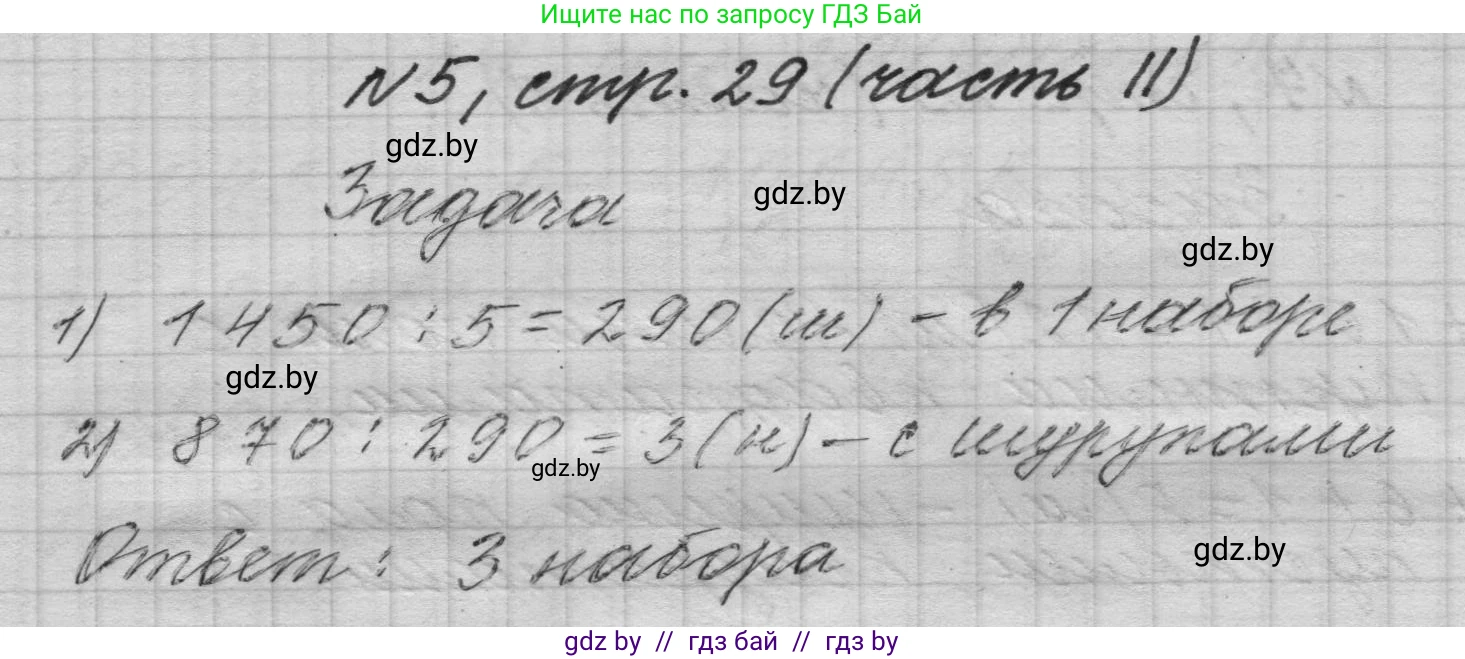 Ищите нас по запросу ГДЗ Бай
N5, стр. 29 (часть II)
gdz.by
Задача
gdz.by
gdz.by
1) 1450 : 5 = 290 (ш) - в 1 наборе
gdz.by
2) 870 : 290 = 3 (н) - с шурупами
gdz.by
Ответ: 3 набора
gdz.by
gdz by // гдз бай // гдз by